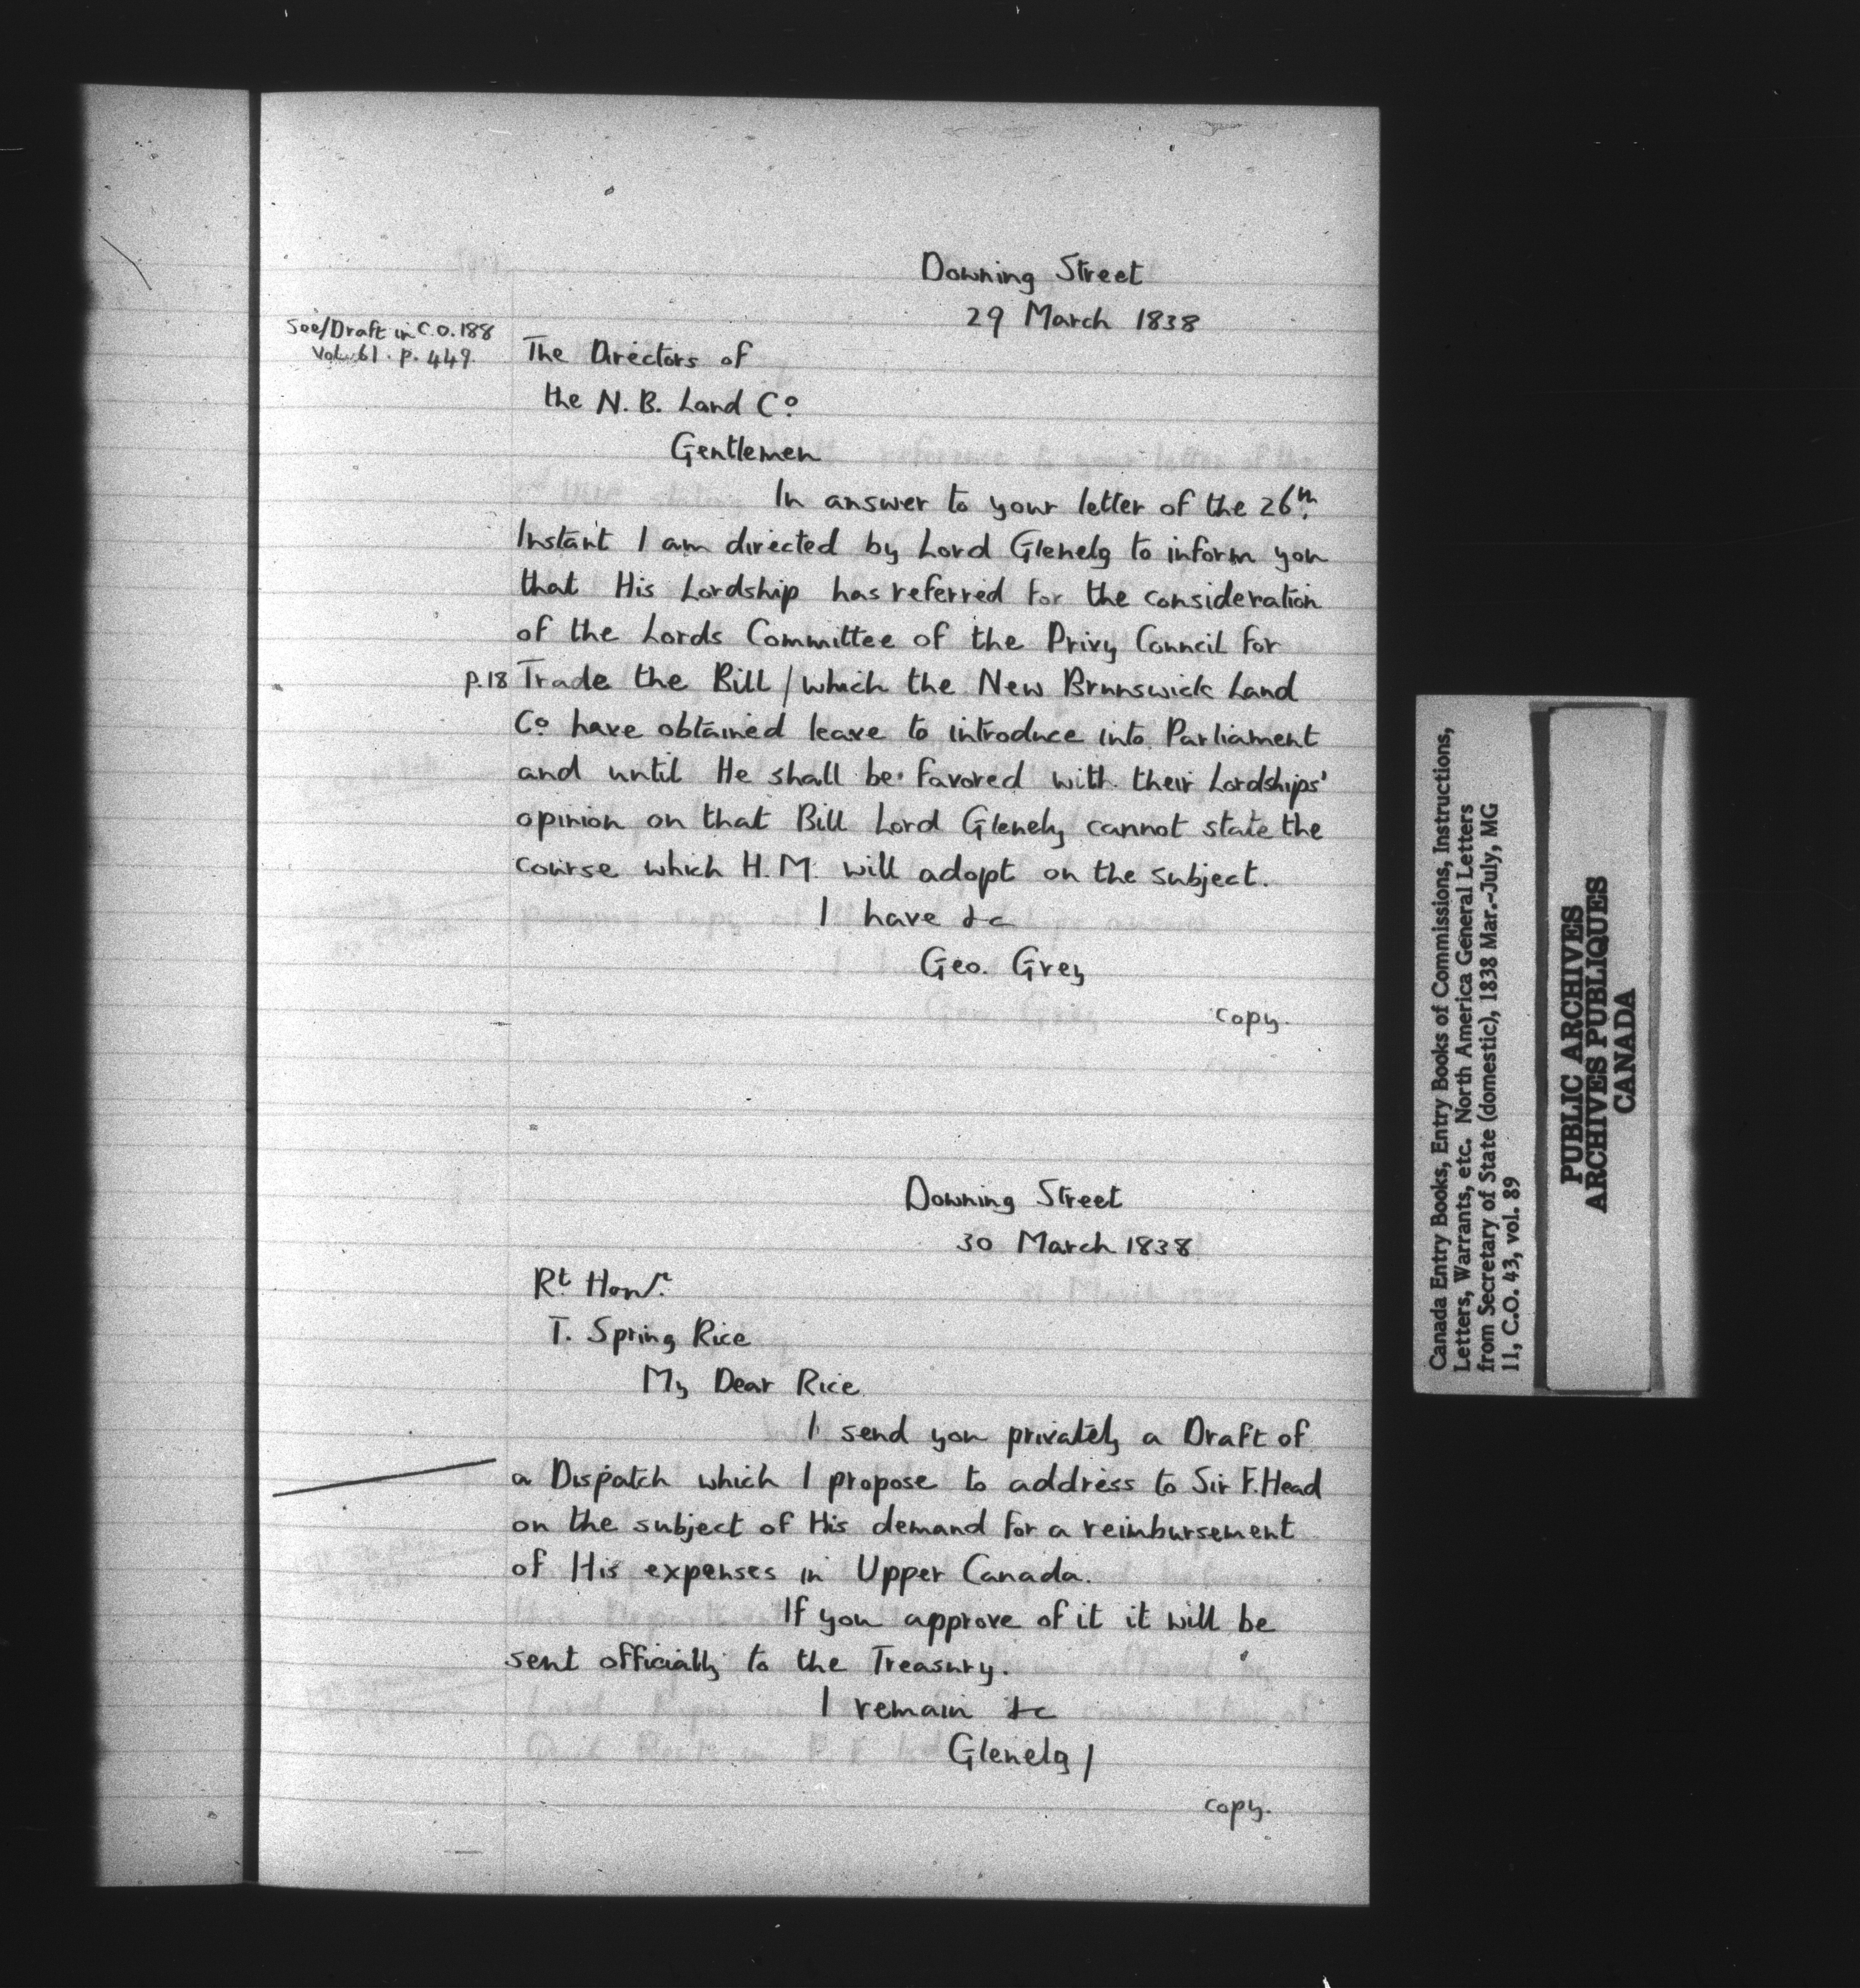 Downing Street
29 March 1838
See/Draft in C.O. 188
Vol. 61. p. 449.
The Directors of
the N. B. Land Co.
Gentlemen
In answer to your letter of the 26th.
Instant I am directed by Lord Glenelg to inform you
that His Lordship has referred for the consideration
of the Lords Committee of the Privy Council for
p.18 Trade the Bill / which the New Brunswick Land
Co. have obtained leave to introduce into Parliament
and until He shall be favored with their Lordships'
opinion on that Bill Lord Glenelg cannot state the
course which H.M. will adopt on the subject.
I have &c
Geo. Grey
copy.
Downing Street
30 March 1838
Rt
T. Spring Rice
My Dear Rice
I send you privately a Draft of
a Dispatch which I propose to address to Sir F. Head
on the subject of His demand for a reimbursement
of His expenses in Upper Canada.
If you approve of it it will be
sent officially to the Treasury.
I remain &c
Glenelg /
copy.
Canada Entry Books, Entry Books of Commissions, Instructions,
Letters, Warrants, etc. North America General Letters
from Secretary of State (domestic), 1838 Mar.-July, MG
11, C.O. 43, vol. 89
PUBLIC ARCHIVES
ARCHIVES PUBLIQUES
CANADA